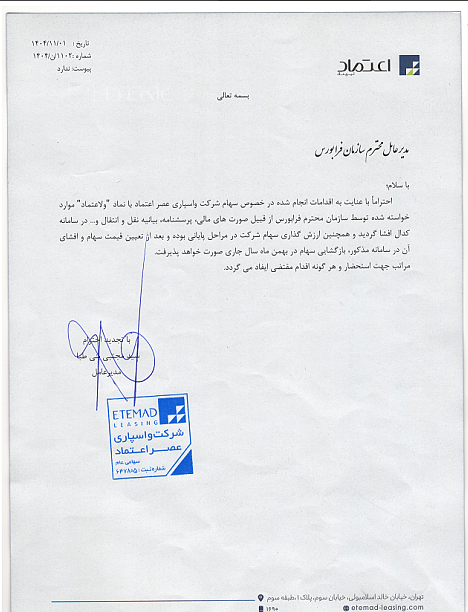 تاریخ : ۱۴۰۴/۱۱/۰۱
شماره : ۱۱۰۲/ن/۱۴۰۴
پیوست: ندارد
اعتماد
لیزینگ
بسمه تعالی
مدیرعامل محترم سازمان فرابورس
با سلام؛
احتراماً با عنایت به اقدامات انجام شده در خصوص سهام شرکت واسپاری عصر اعتماد با نماد "ولاعتماد" موارد
خواسته شده توسط سازمان محترم فرابورس از قبیل صورت های مالی، پرسشنامه، بیانیه نقل و انتقال و... در سامانه
کدال افشا گردید و همچنین ارزش گذاری سهام شرکت در مراحل پایانی بوده و بعد از تعیین قیمت سهام و افشای
آن در سامانه مذکور، بازگشایی سهام در بهمن ماه سال جاری صورت خواهد پذیرفت.
مراتب جهت استحضار و هر گونه اقدام مقتضی ایفاد می گردد.
با تجدید احترام
سید مجتبی
مدیرعامل
ETEMAD
LEASING
شرکت واسپاری
عصر اعتماد
سهامی عام
شماره ثبت : ۶۴۷۸۸۵
تهران، خیابان خالد اسلامبولی، خیابان سوم، پلاک ۱، طبقه سوم
۱۶۹۰
etemad-leasing.com